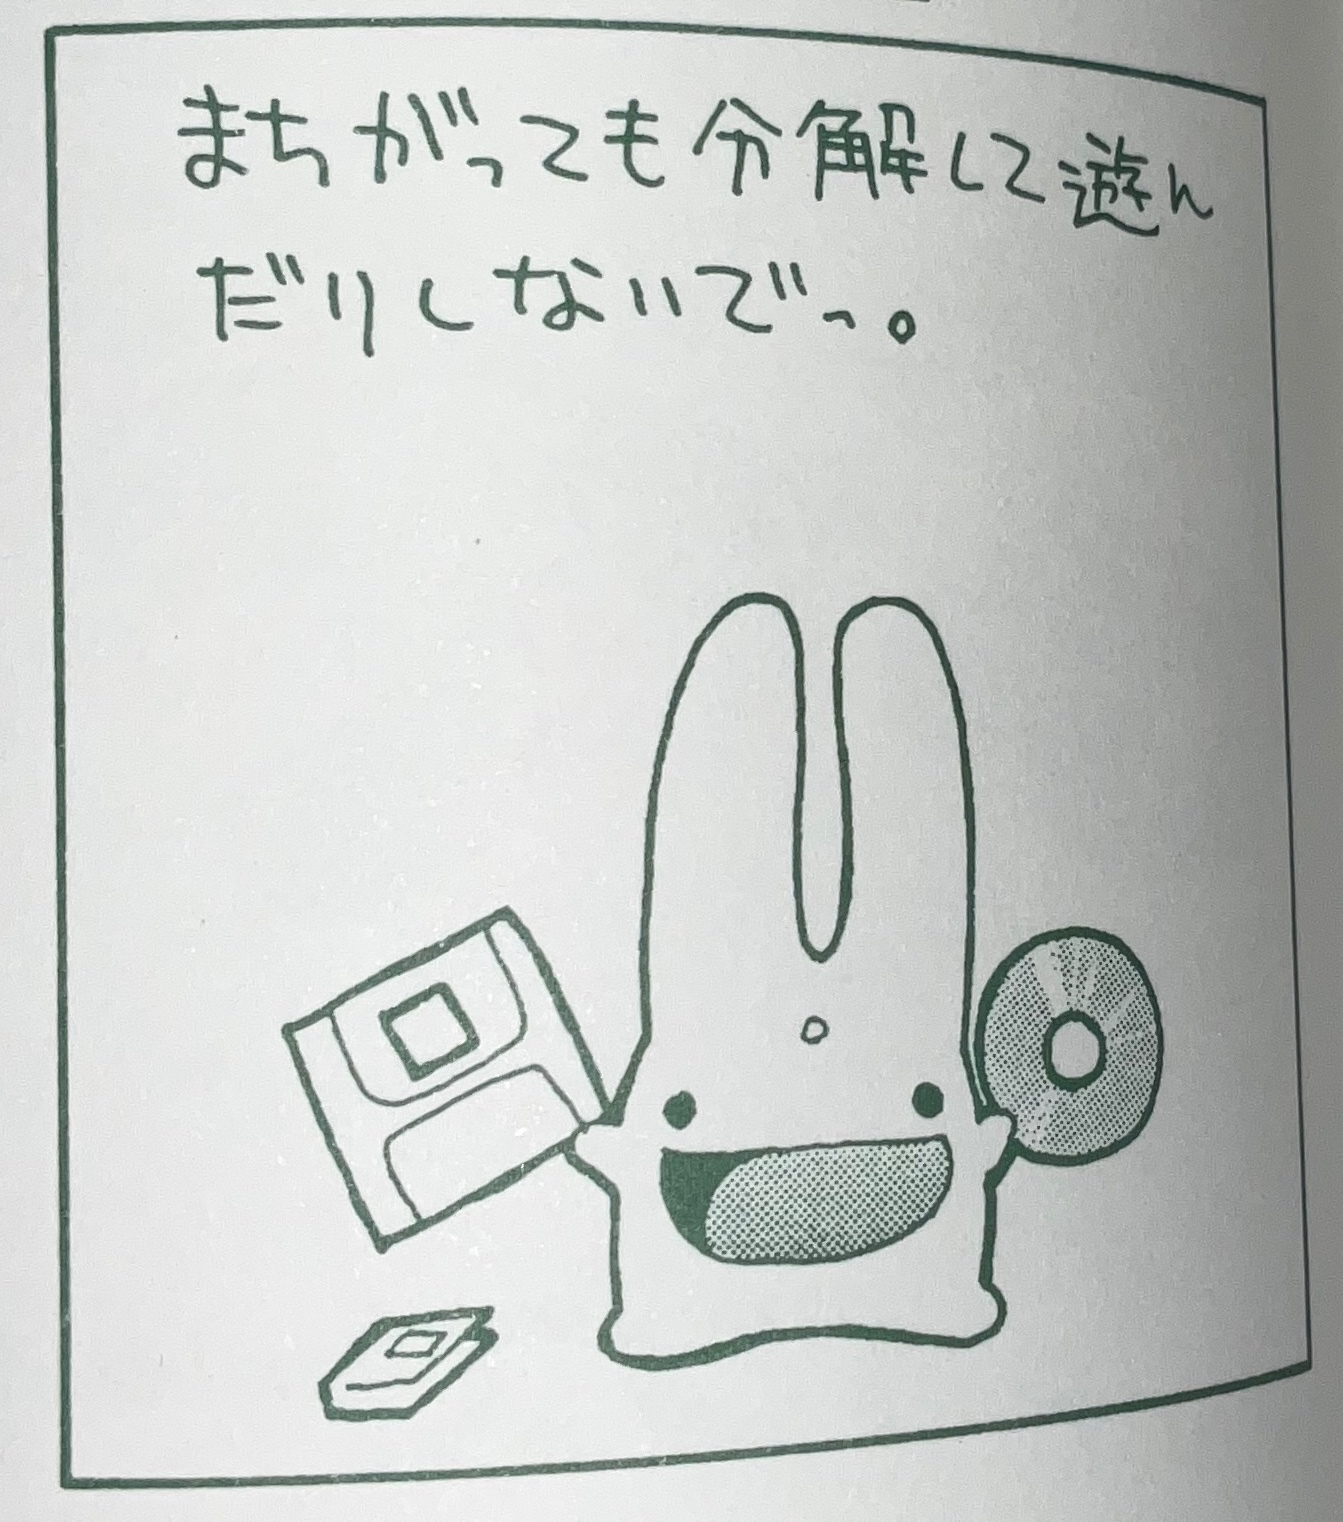 まちがっても分解して遊ん
だりしないでっ。